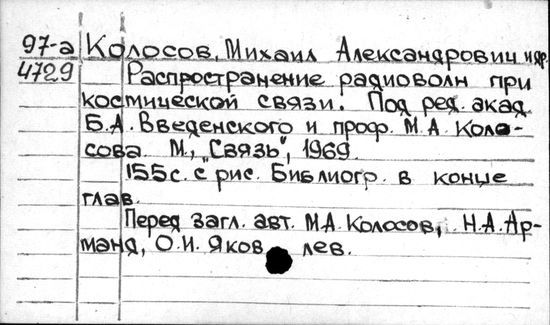 97-а Колосов, Михаил Александрович и др.
4729 Распространение радиоволн при
космической связи. Под ред. акад.
Б.А. Введенского и проф. М.А. Коло-
сова. М., „Связь", 1969.
155с. с рис. Библиогр. в конце
глав.
Перед загл. авт. М.А. Колосов, Н.А. Ар-
манд, О.И. Яков лев.